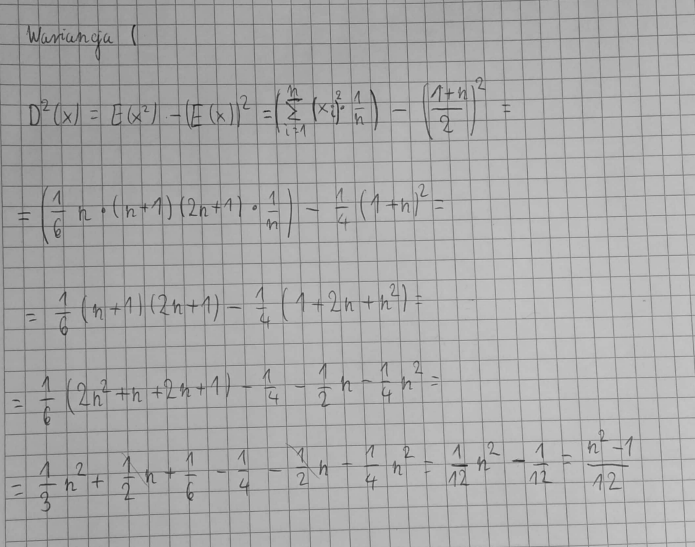 Wariancja (
D²(x) = E(x²) - (E(x))² = (∑_{i=1}^{n} (xi)² · 1/n) - ((1+n)/2)² =
= (1/6 n · (n+1)(2n+1) · 1/n) - 1/4 (1+n)² =
= 1/6 (n+1)(2n+1) - 1/4 (1+2n+n²) =
= 1/6 (2n²+n+2n+1) - 1/4 - 1/2 n - 1/4 n² =
= 1/3 n² + 1/2 n + 1/6 - 1/4 - 1/2 n - 1/4 n² = 1/12 n² - 1/12 = (n²-1)/12